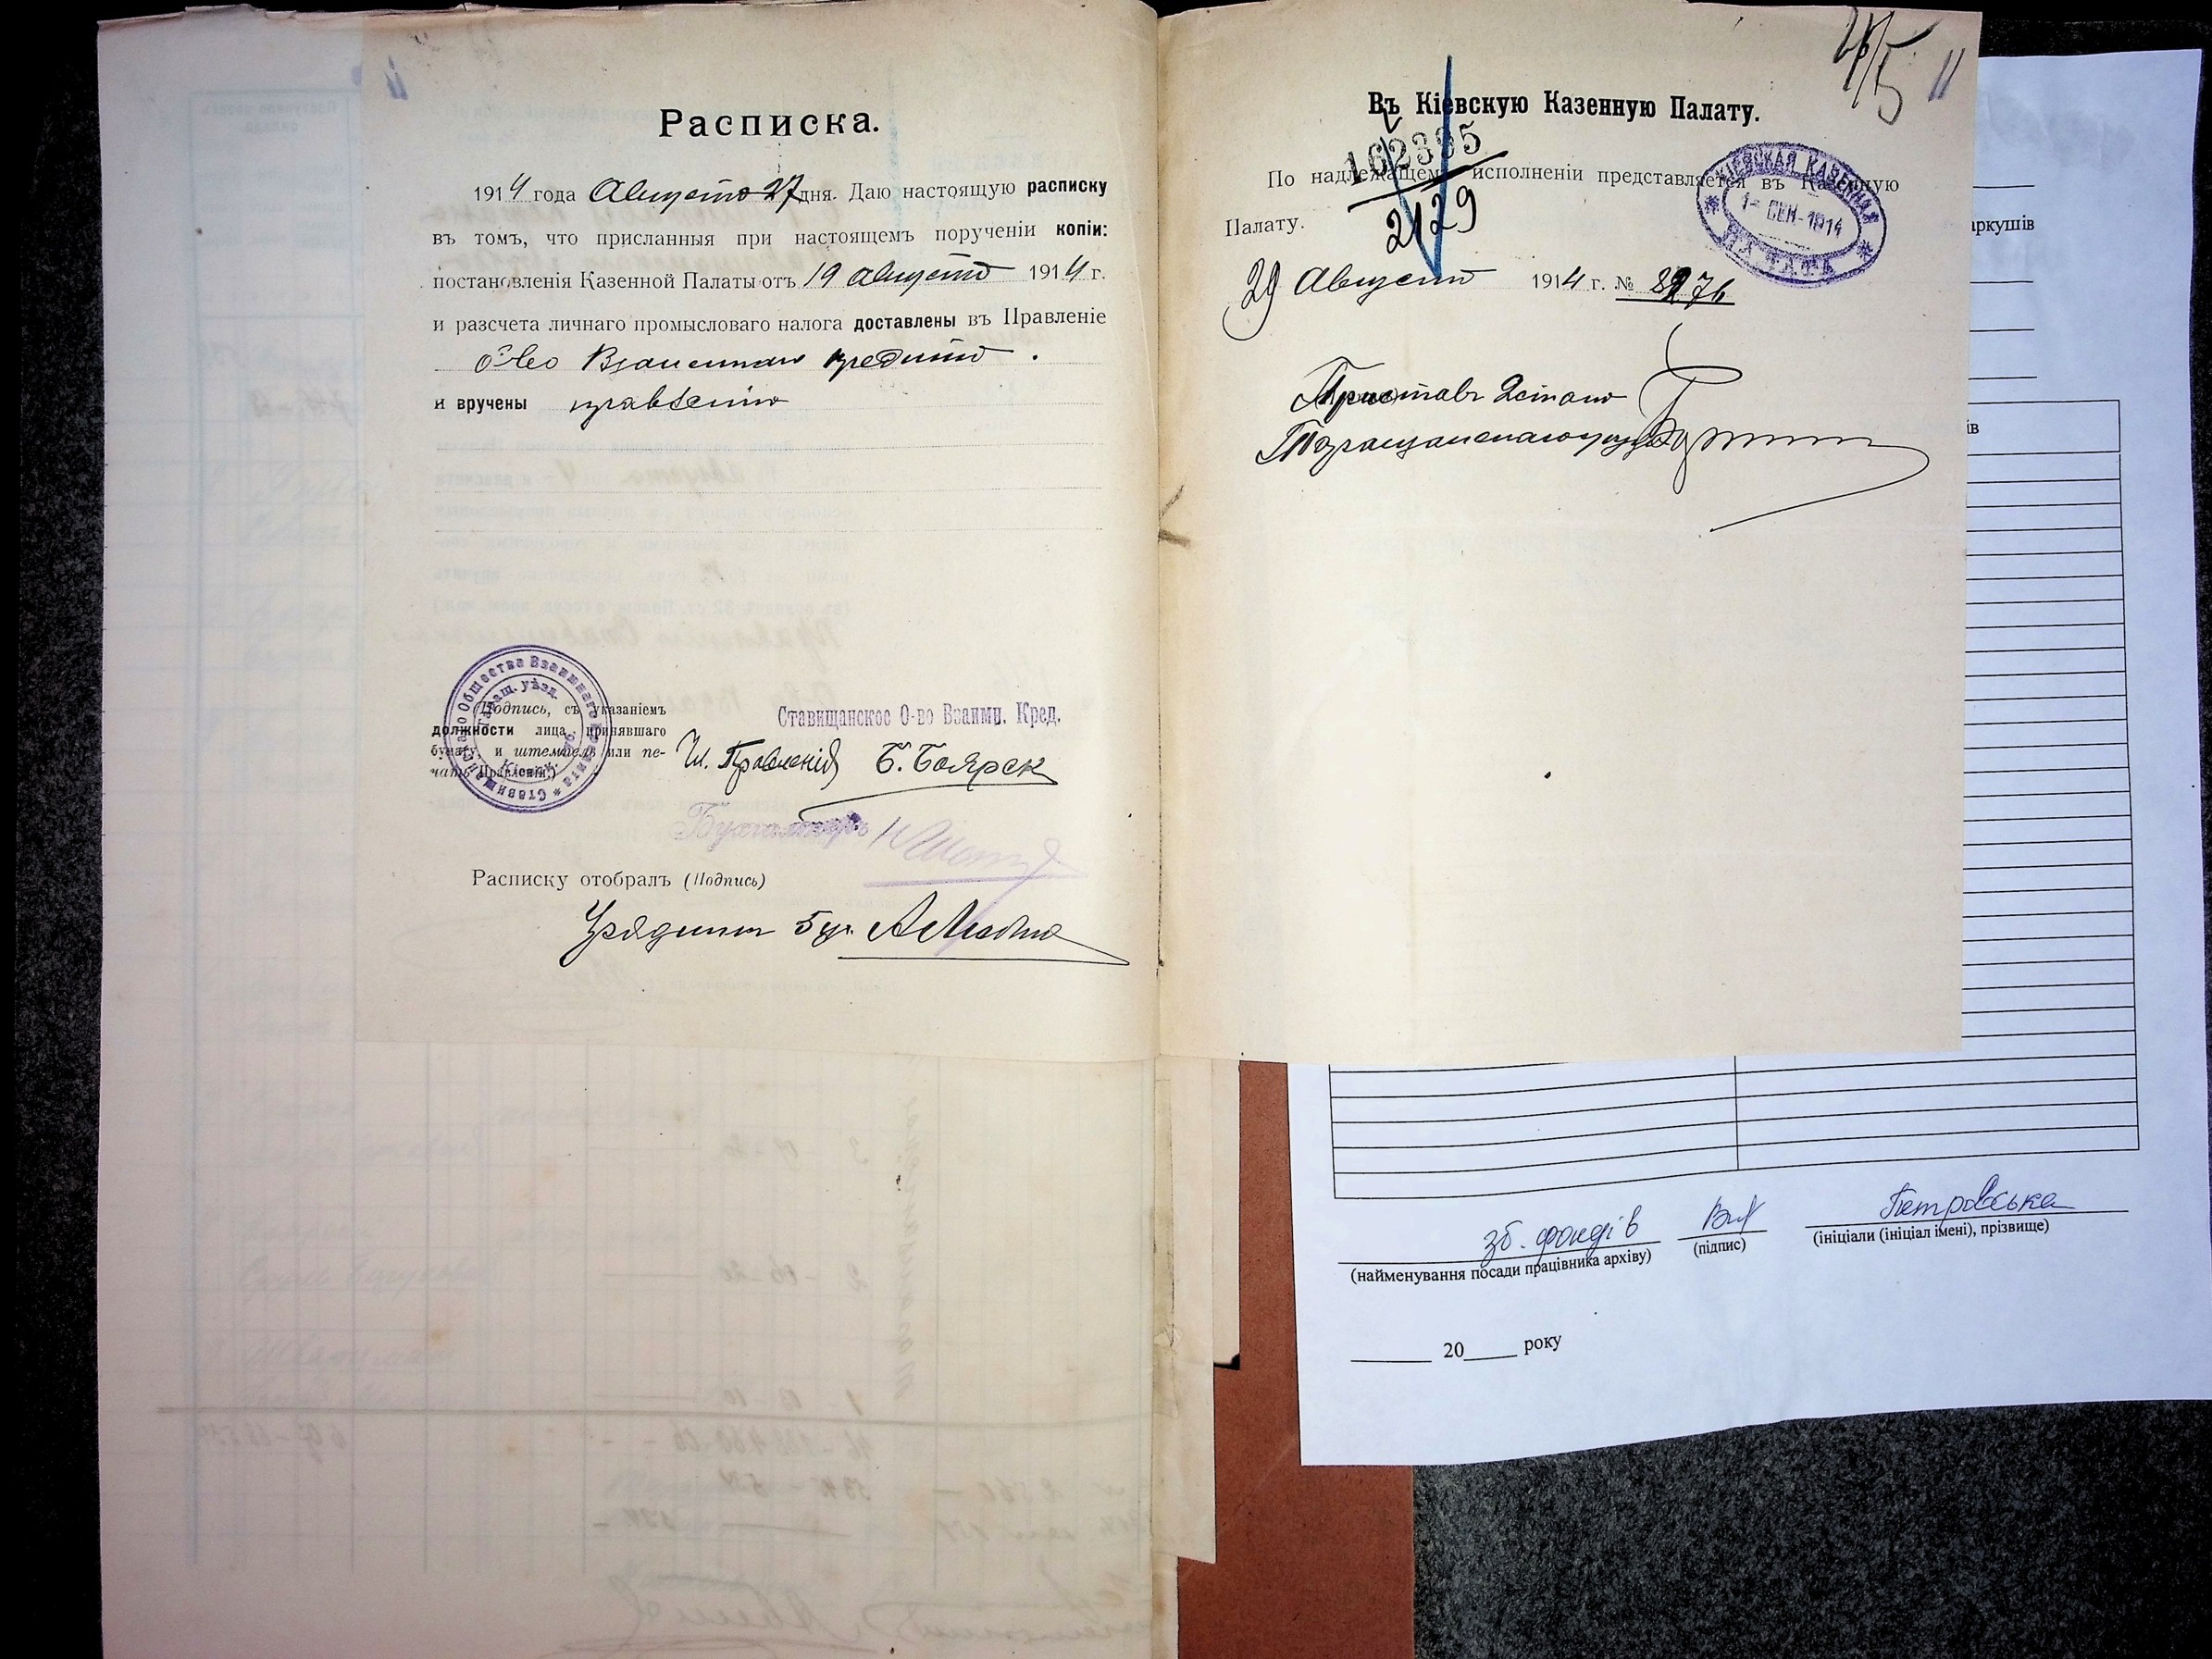 Расписка.
1914 года Августа 27 дня. Даю настоящую расписку
въ томъ, что присланныя при настоящемъ порученіи копіи:
постановленія Казенной Палаты отъ 19 Августа 1914 г.
и разсчета личнаго промысловаго налога доставлены въ Правленіе
О-во Взаимнаго кредита.
и вручены правленію
(Подпись, съ указаніемъ
должности лица принявшаго
бумагу, и штемпель или пе-
чать Правленія.)
Ставищанское Общество Взаимнаго Кредита
Таращ. уѣзд.
Кіевск. губ.
Ставищанское О-во Взаимн. Кред.
Чл. Правленія Б. Боярск
Бухгалтеръ
Расписку отобралъ (Подпись)
Урядник 5 уч.
26/5 11
Въ Кіевскую Казенную Палату.
162385
2129
По надлежащемъ исполненіи представляется въ Казенную
Палату.
КІЕВСКАЯ КАЗЕННАЯ
1- СЕН-1914
ПАЛАТА
29 Августа 1914 г. № 8276
Пристав 2 стана
Таращанскаго уезда
аркушів
ів
зб. фондів Петровська
(найменування посади працівника архіву) (підпис) (ініціали (ініціал імені), прізвище)
20 року